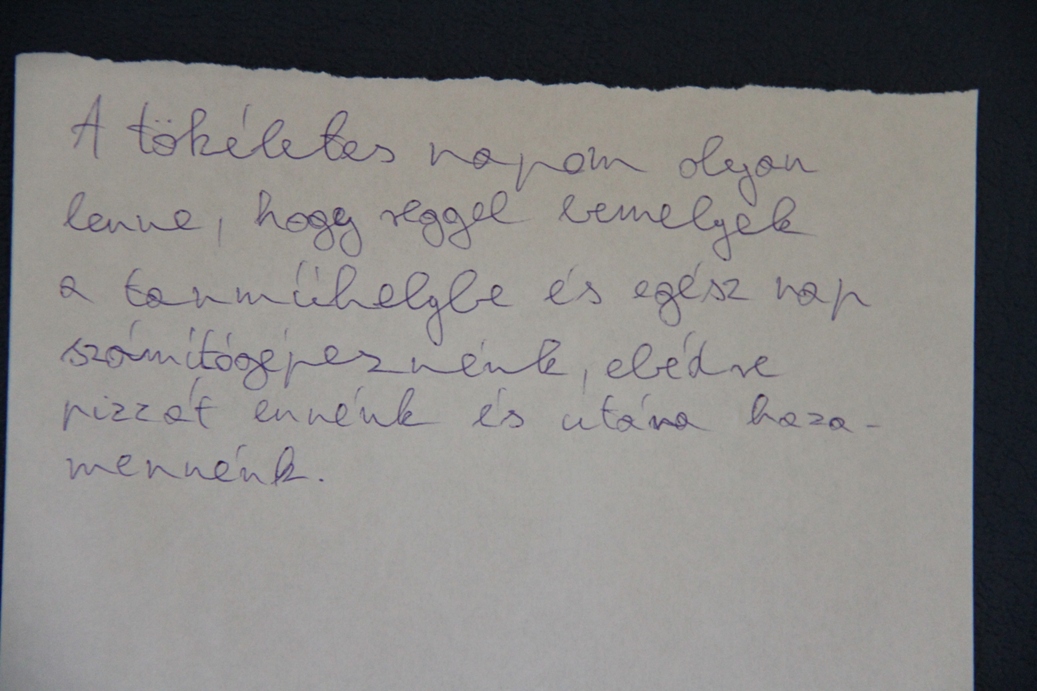 A tökéletes napom olyan
lenne, hogy reggel bemelyek
a tanműhelybe és egész nap
számítógépeznénk, ebédre
pizzát ennénk és útána haza-
mennénk.